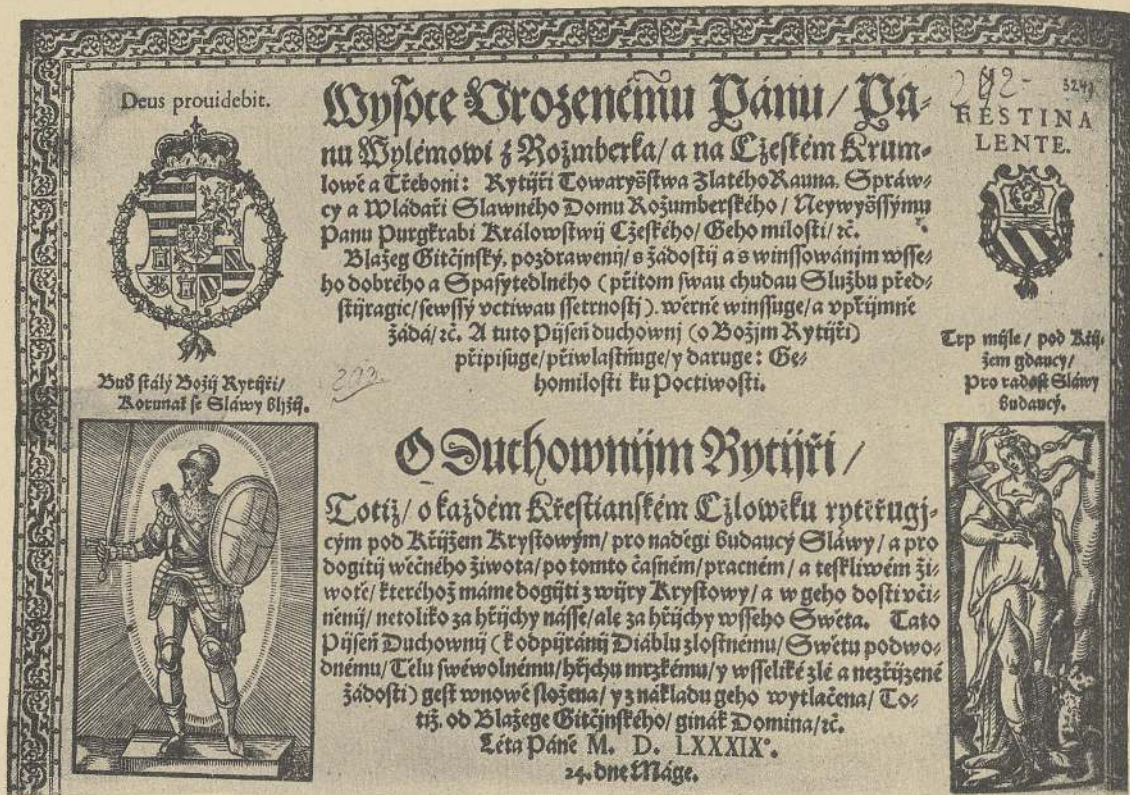 Deus prouidebit.
Wysoce Vrozenému Pánu/ Pa-
nu Wylémowi z Rožmberka/ a na Cžeském Krum-
lowě a Třeboni: Rytijři Towaryšstwa Zlatého Rauna. Spráw-
cy a Wládaři Slawného Domu Rožumberského/ Neywyòssýmu
Panu Purgkrabi Králowstwij Cžeského/ Geho milosti/ ꝛc.
Blažeg Gitčjnský, pozdrawenij/ s žádostij a s winssowánjm wsse-
ho dobrého a Spasytedlného (přitom swau chudau Službu před-
stijragic/ sewssý vctiwau ssetrnostj). wěrně winssuge/ a vpřijmně
žádá/ ꝛc. A tuto Pijseň duchownj (o Božjm Rytijři)
připisuge/ přiwlastňuge/ y daruge: Ge-
homilosti ku Poctiwosti.
292-
3249
FESTINA
LENTE.
Buď stálý Božij Rytijři/
Korunať se Sláwy bljžij.
293.
Trp mijle/ pod Křij-
žem gdaucy/
Pro radost Sláwy
budaucý.
O Duchownijm Rytijři/
Totiž/ o každém Křestianském Cžlowěku rytěřugj-
cým pod Křijžem Krystowým/ pro naděgi budaucý Sláwy/ a pro
dogitij wěčného žiwota/ po tomto časném/ pracném/ a teskliwém ži-
wotě/ kteréhož máme dogijti z wijry Krystowy/ a w geho dosti včí-
něnij/ netoliko za hřijchy násse/ ale za hřijchy wsseho Swěta. Tato
Pijseň Duchownij (k odpijránij Diáblu zlostnému/ Swětu podwo-
dnému/ Tělu swéwolnému/ hřjchu mrzkému/ y wsseliké zlé a nezřijzené
žádosti) gest wnowě složena/ y z nákladu geho wytlačena/ To-
tiž. od Blažege Gitčjnského/ ginák Domina/ ꝛc.
Léta Páně M. D. LXXXIX°.
24. dne Máge.